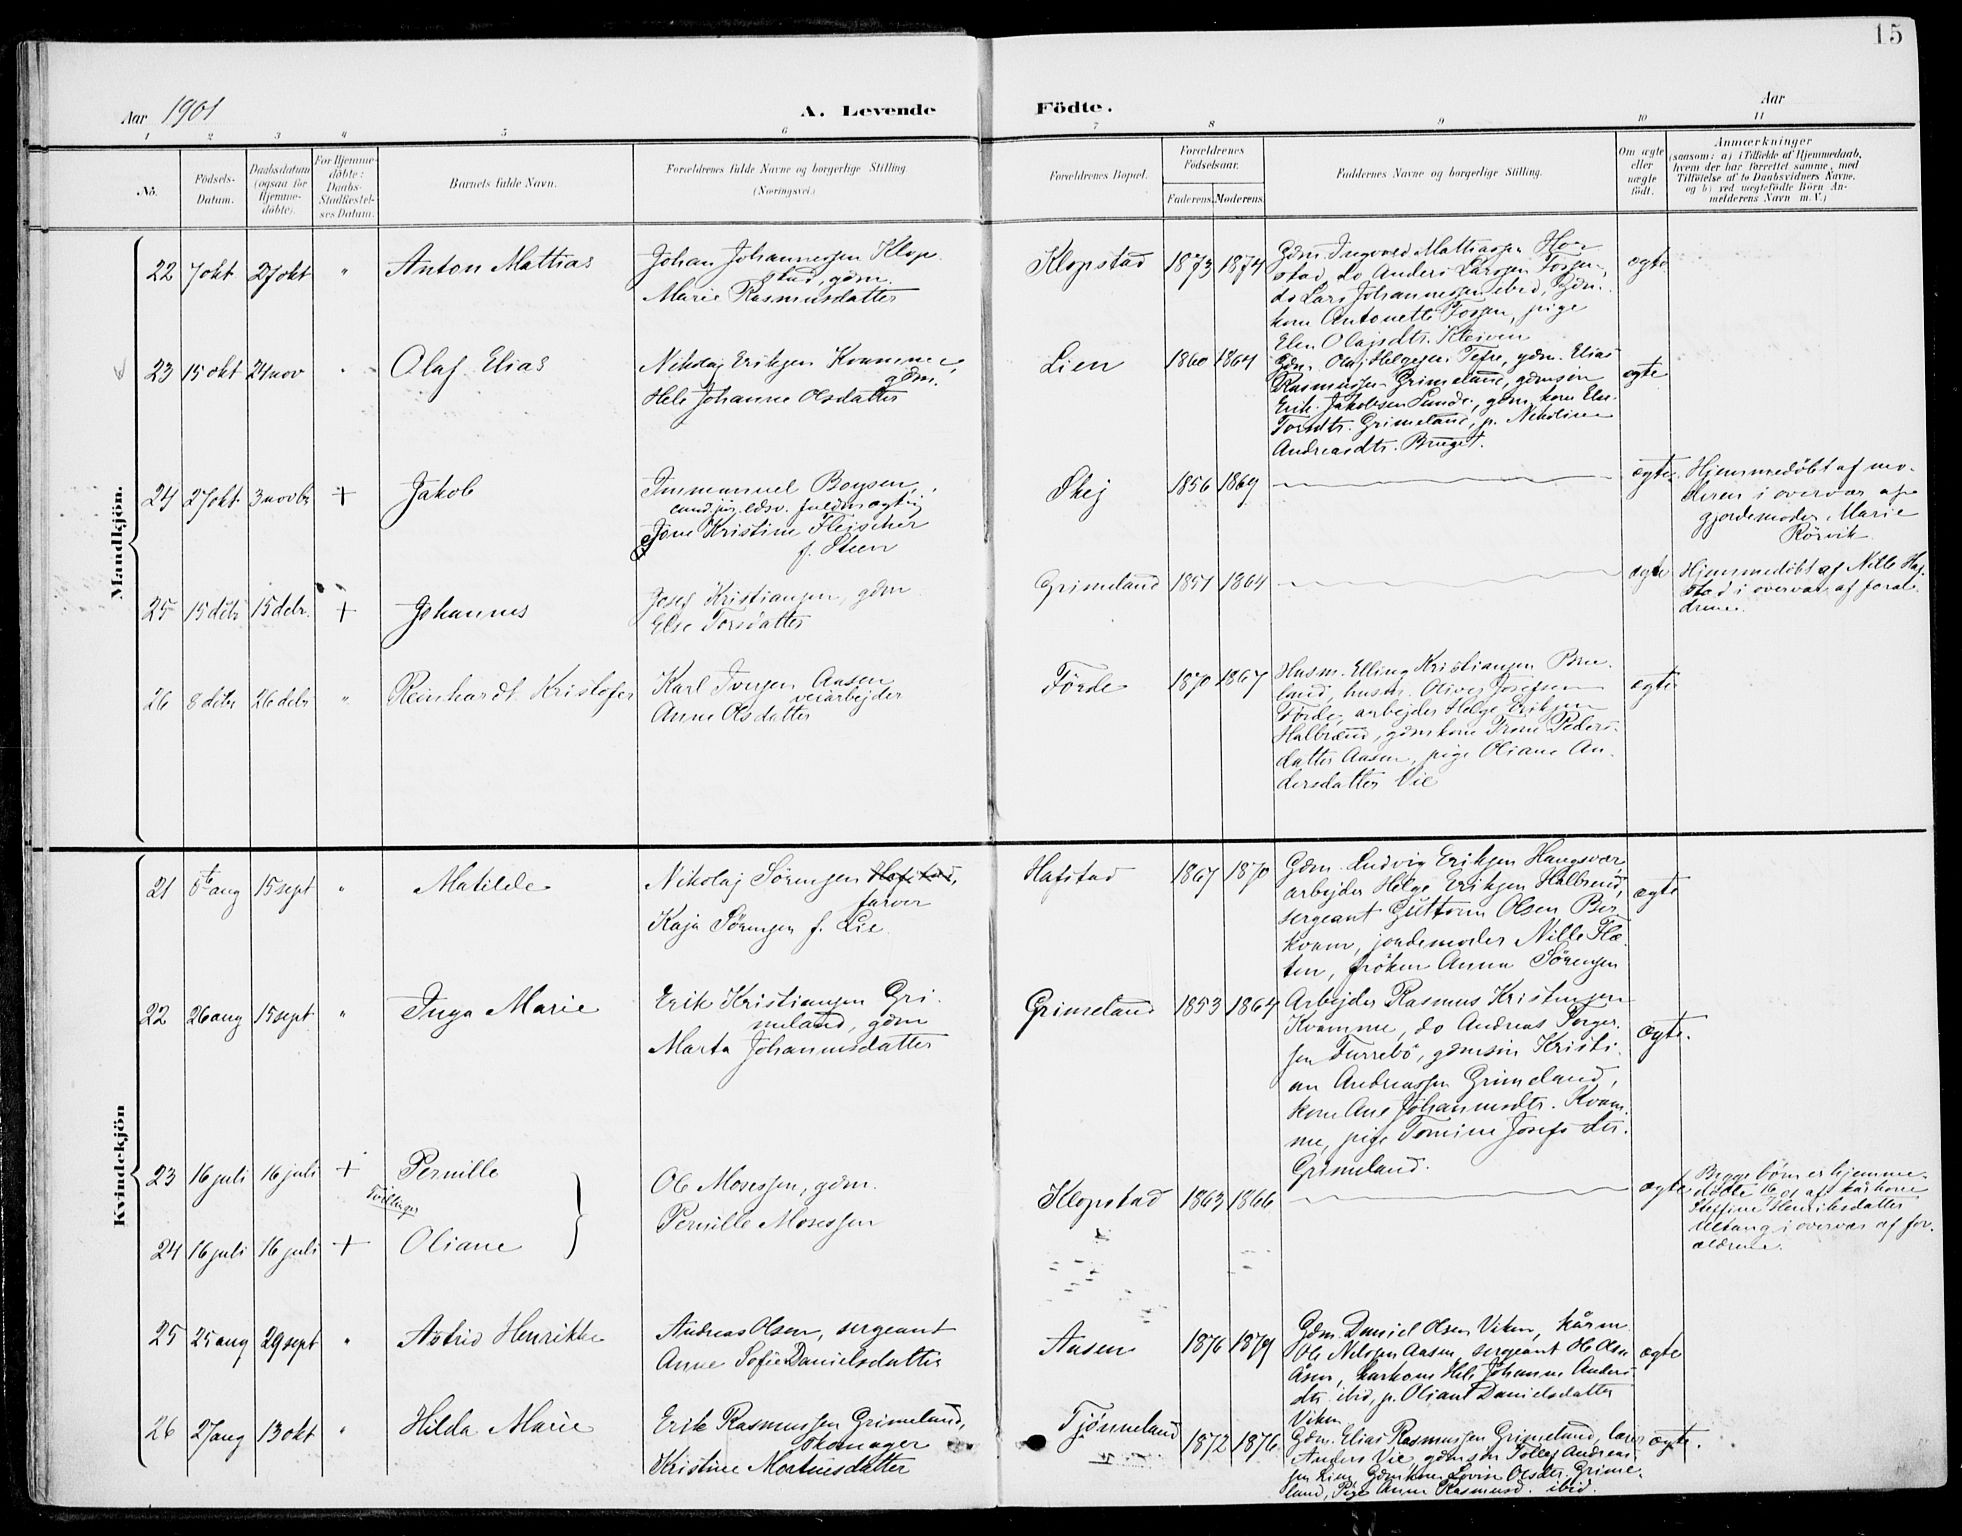 15
Aar 1901
A. Levende Födte.
Aar
1 2 3 4 5 6 7 8 9 10 11
No.
Födsels-Datum.
Daabsdatum (ogsaa for Hjemme-döbte).
For Hjemme-döbte: Daabs-Stadfæstel-ses Datum.
Barnets fulde Navn.
Forældrenes fulde Navne og borgerlige Stilling. (Næringsvei.)
Forældrenes Bopæl.
Forældrenes Födselsaar.
Faderens. Moderens.
Faddernes Navne og borgerlige Stilling.
Om ægte eller uægte födt.
Anmærkninger
(saasom: a) i Tilfælde af Hjemmedaab, hvem der har forrettet samme, med Tilföielse af to Daabsvidners Navne, og b) ved uægtefödte Börn An-melderens Navn m. V.)
Mandkjön.
22 7 okt 27 okt " Anton Mattias
Johan Johannessen Klop-
stad, gdm.
Marie Rasmusdatter
Klopstad 1873 1874
Gdm. Ingvald Mattiassen Hor-
stad, do Anders Larssen Fossen,
do Lars Johannessen ibid, Gdm.
kone Antonette Fossen, pige
Elen Olajsdtr. Kleiven
ægte
23 15 okt 24 nov " Olaf Elias
Nikolaj Eriksen Kvamme,
gdm.
Hele Johanne Olsdatter
Lien 1860 1864
Gdm. Olaj Helgesen Tefre, gdm. Elias
Rasmussen Grimeland, gdmsøn
Erik Jakobsen Sunde, gdm. kone Else
Torsdtr. Grimeland, p. Nikoline
Andreasdtr. Bruget.
ægte
24 27 okt. 3 novbr + Jakob
Immanuel Boysen,
cand. jur. edsv. fuldmægtig
Jone Kristine Fleischer
f. Steen
Skej 1856 1869
ægte
Hjemmedøbt af mo-
deren i overvær af
gjordemoder Marie
Rörvik
25 15 dcbr 15 debr. + Johannes
Josef Kristiansen, gdm
Else Torsdatter
Grimeland 1851 1864
ægte
Hjemmedøbt af Nille Haf-
stad i overvær af foræl-
drene.
26 8 dcbr 26 debr " Reinhardt Kristofer
Karl Iversen Aasen
veiarbejder
Anne Olsdatter
Förde 1870 1867
Husm. Elling Kristiansen Bru-
land, husm. Oliver Josefsen
Förde, arbejder Helge Eriksen
Halbrænd, gdmkone Trine Peders-
datter Aasen, pige Oliane An-
dersdatter Vie
ægte
Kvindekjön
21 5te aug 15 sept " Matilde
Nikolaj Sörensen Hafstad,
farver
Kaja Sörensen f. Lie
Hafstad 1867 1870
Gdm. Ludvig Eriksen Haugsvær
arbejder Helge Eriksen Halbrend,
sergeant Guttorm Olsen Ber-
kvam, jordemoder Nille Flæ-
ten, fröken Anna Sörensen
ægte
22 26 aug 15 sept " Inga Marie
Erik Kristiansen Gri-
meland, gdm
Marta Johannesdatter
Grimeland 1853 1864
Arbejder Rasmus Kristensen
Kvamme, do Andreas Torger-
sen Furrebö, gdmsön Kristi-
an Andreassen Grimeland,
kone Ane Johannesdtr. Kvam-
me, pige Tomine Josefsdtr.
Grimeland.
ægte.
23 16 juli 16 juli + Pernille
Tvillinger
24 16 juli 16 juli + Oliane
Ole Mosessen, gdm.
Pernille Mosessen
Klopstad 1863 1866
ægte
Begge børn er hjemme-
døbte 16 ds af kårkone
Steffine Henriksdatter
Ultang i overvær af for-
ældrene.
25 25 aug 29 sept " Astrid Henrikke
Andreas Olsen, sergeant
Anne Sofie Danielsdatter
Aasen 1876 1879
Gdm. Daniel Olsen Viken, kårm.
Ole Nilssen Aasen, sergeant Ole Olsen
Åsen, karkone Hele Johanne Anders-
dtr. ibid, p. Oliane Danielsdatter
Viken
ægte
26 27 aug 13 okt " Hilda Marie
Erik Rasmussen Grimeland,
skomager
Kristine Mortensdatter
Tjönneland 1872 1876
Gdm. Elias Rasmussen Grimelund, lærer
Anders Vie, gdmsøn Tollef Andreas-
sen Lien, Gdmkone Lovise Olsdtr. Grime-
land, Pige Anne Rasmusd. ibid.
ægte.